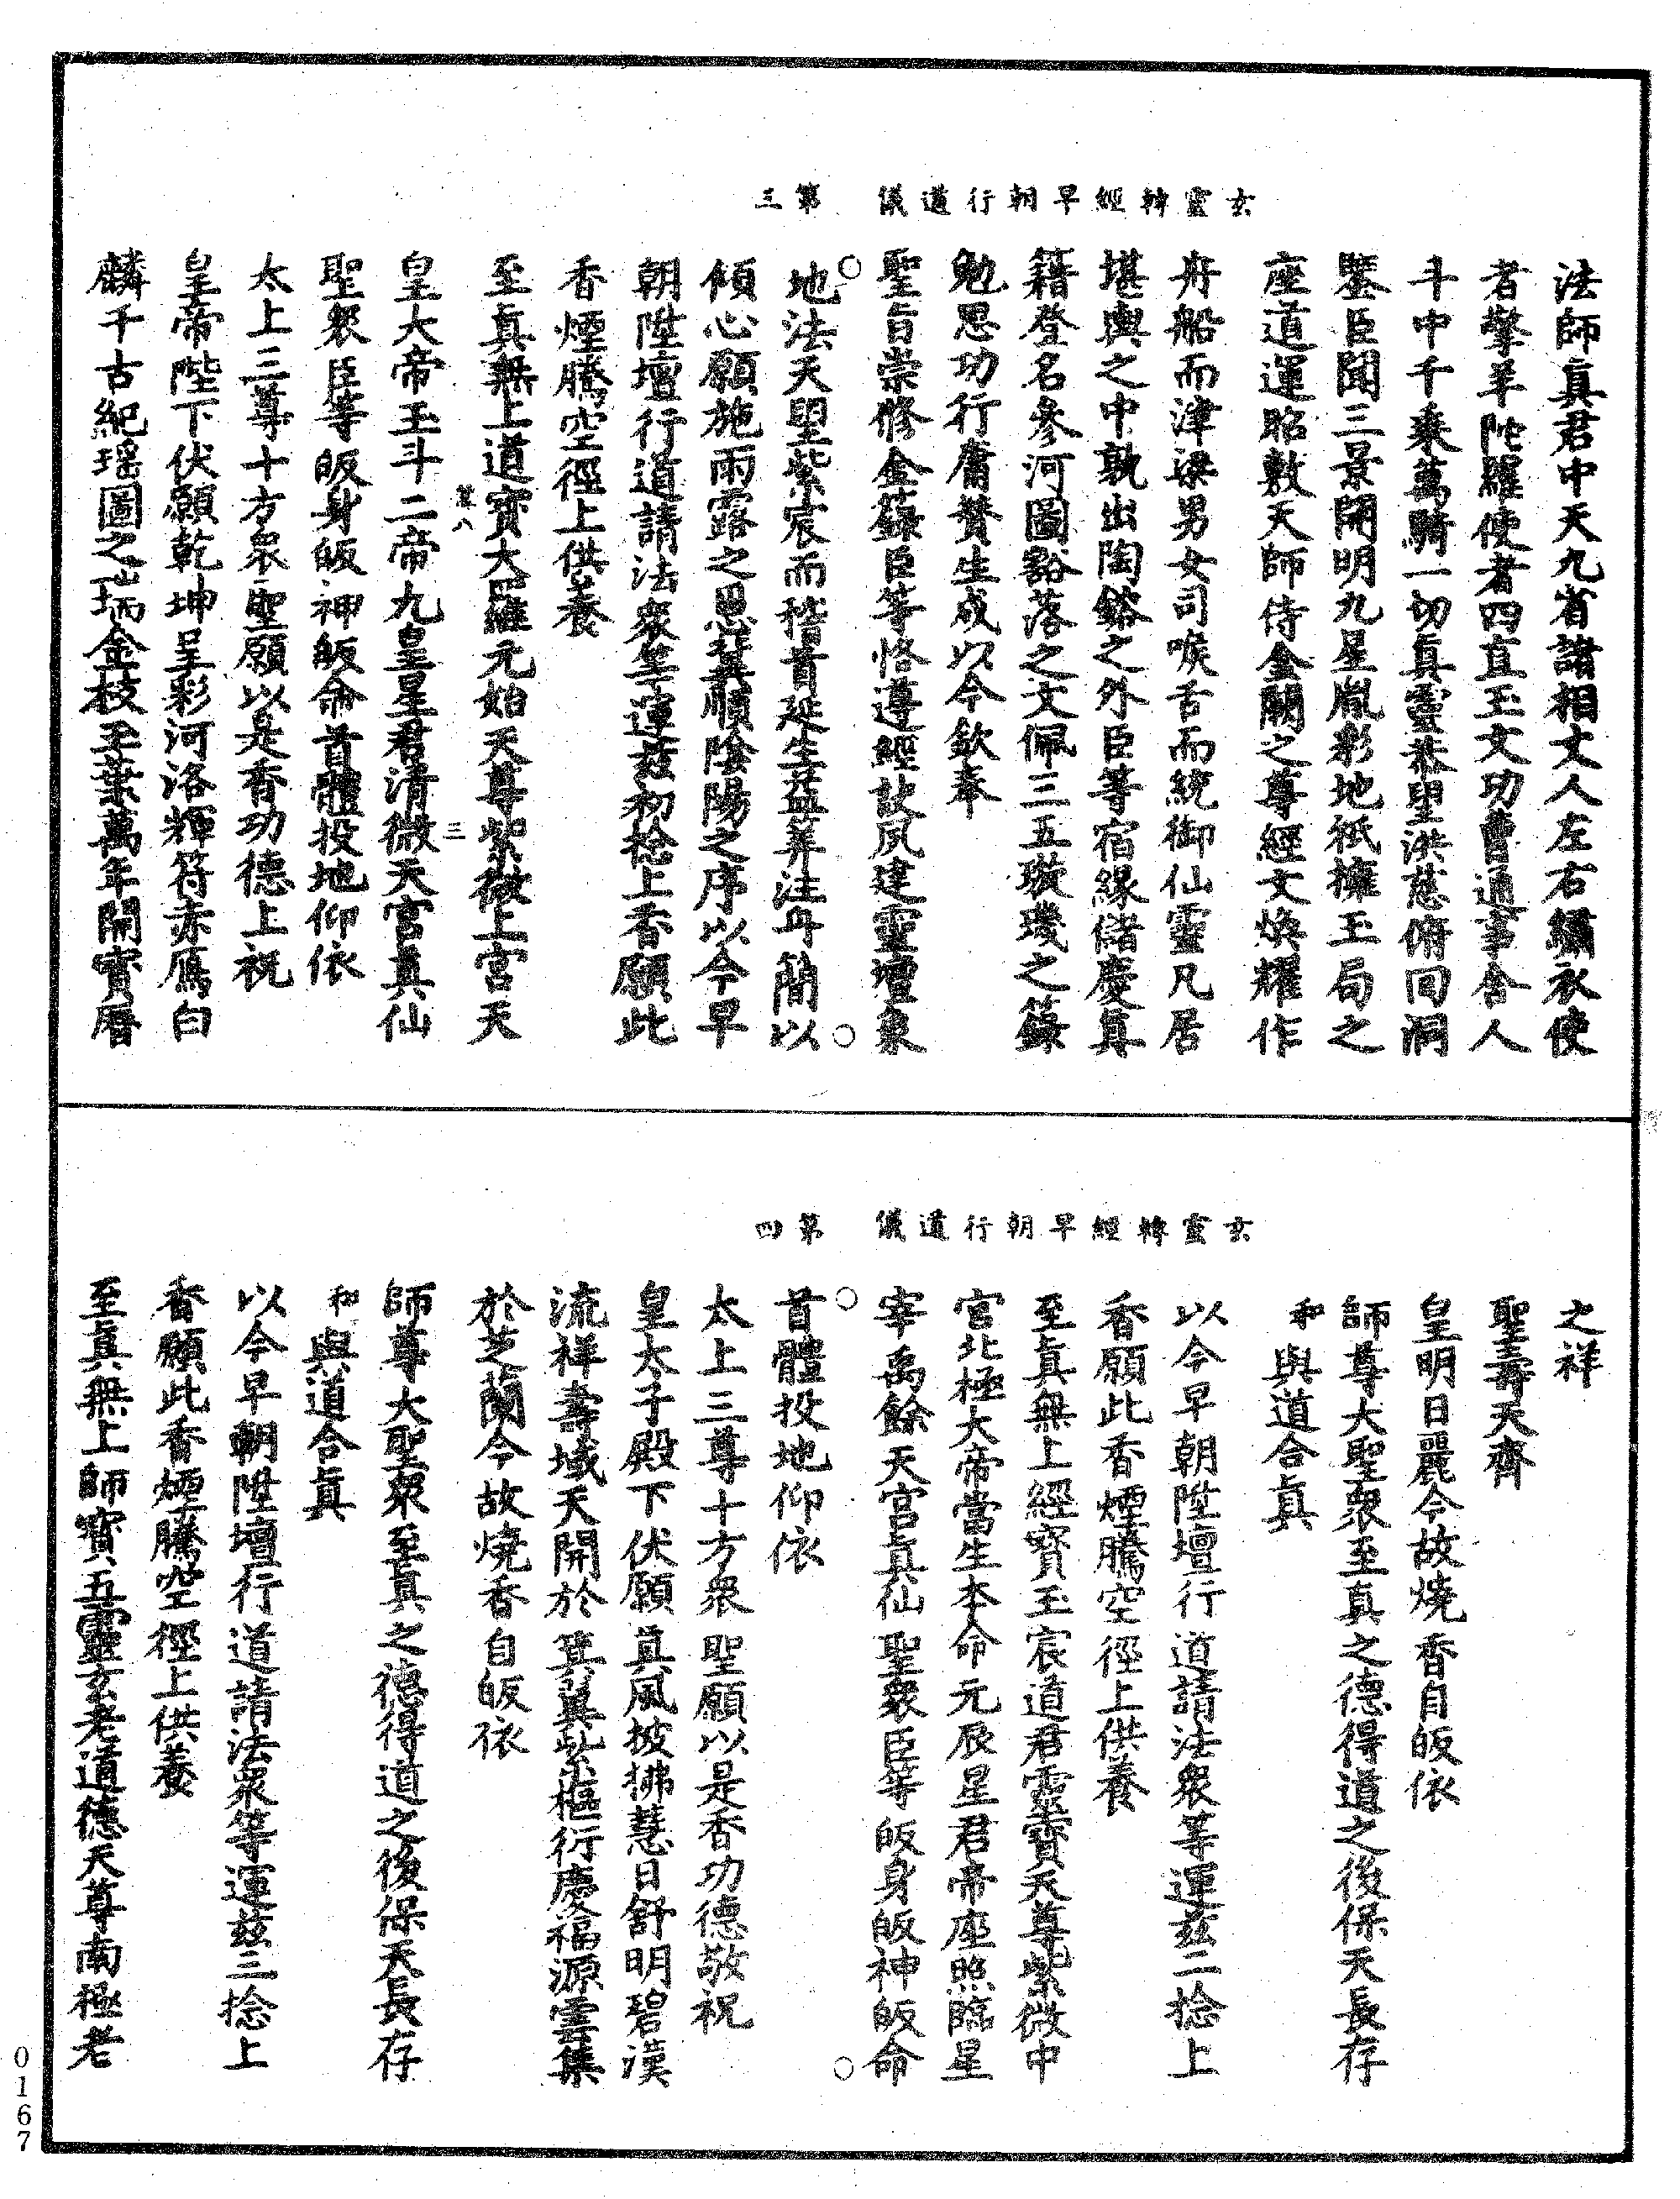 玄靈轉經早朝行道儀　第三
法師真君中天九省諸相丈人左右繡衣使
者擎羊陀羅使者四直玉文功曹通事舍人
斗中千乘萬騎一切真靈恭望洪慈俯回洞
鑒臣聞三景開明九星胤彩地祇擁玉局之
座道運昭敷天師侍金闕之尊經文煥耀作
舟船而津梁男女司喉舌而統御仙靈凡居
堪輿之中孰出陶鎔之外臣等宿緣儲慶真
籍登名參河圖豁落之文佩三五璇璣之籙
勉思功行庸贊生成以今欽奉
聖旨崇修金籙臣等恪遵經訣夙建靈壇象
地法天望紫宸而稽首延生益筭注丹簡以
傾心願施雨露之恩冀順陰陽之序以今早
朝陞壇行道請法衆等運茲初捻上香願此
香煙騰空徑上供養
至真無上道寶大羅元始天尊紫微上宮天
皇大帝玉斗二帝九皇星君清微天宮真仙
聖衆臣等皈身皈神皈命首體投地仰依
太上三尊十方衆聖願以是香功德上祝
皇帝陛下伏願乾坤呈彩河洛輝符赤鴈白
麟千古紀瑤圖之瑞金枝玉葉萬年開寶曆
玄靈轉經早朝行道儀　第四
之祥
聖壽天齊
皇明日麗今故燒香自皈依
師尊大聖衆至真之德得道之後保天長存
和與道合真
以今早朝陞壇行道請法衆等運茲二捻上
香願此香煙騰空徑上供養
至真無上經寶玉宸道君靈寶天尊紫微中
宮北極大帝當生本命元辰星君帝座照臨星
宰禹餘天宮真仙聖衆臣等皈身皈神皈命
首體投地仰依
太上三尊十方衆聖願以是香功德敬祝
皇太子殿下伏願真風披拂慧日舒明碧漢
流祥壽域天開於箕翼紫樞衍慶福源雲集
於芝蘭今故燒香自皈依
師尊大聖衆至真之德得道之後保天長存
和與道合真
以今早朝陞壇行道請法衆等運茲三捻上
香願此香煙騰空徑上供養
至真無上師寶五靈玄老道德天尊南極老
0167